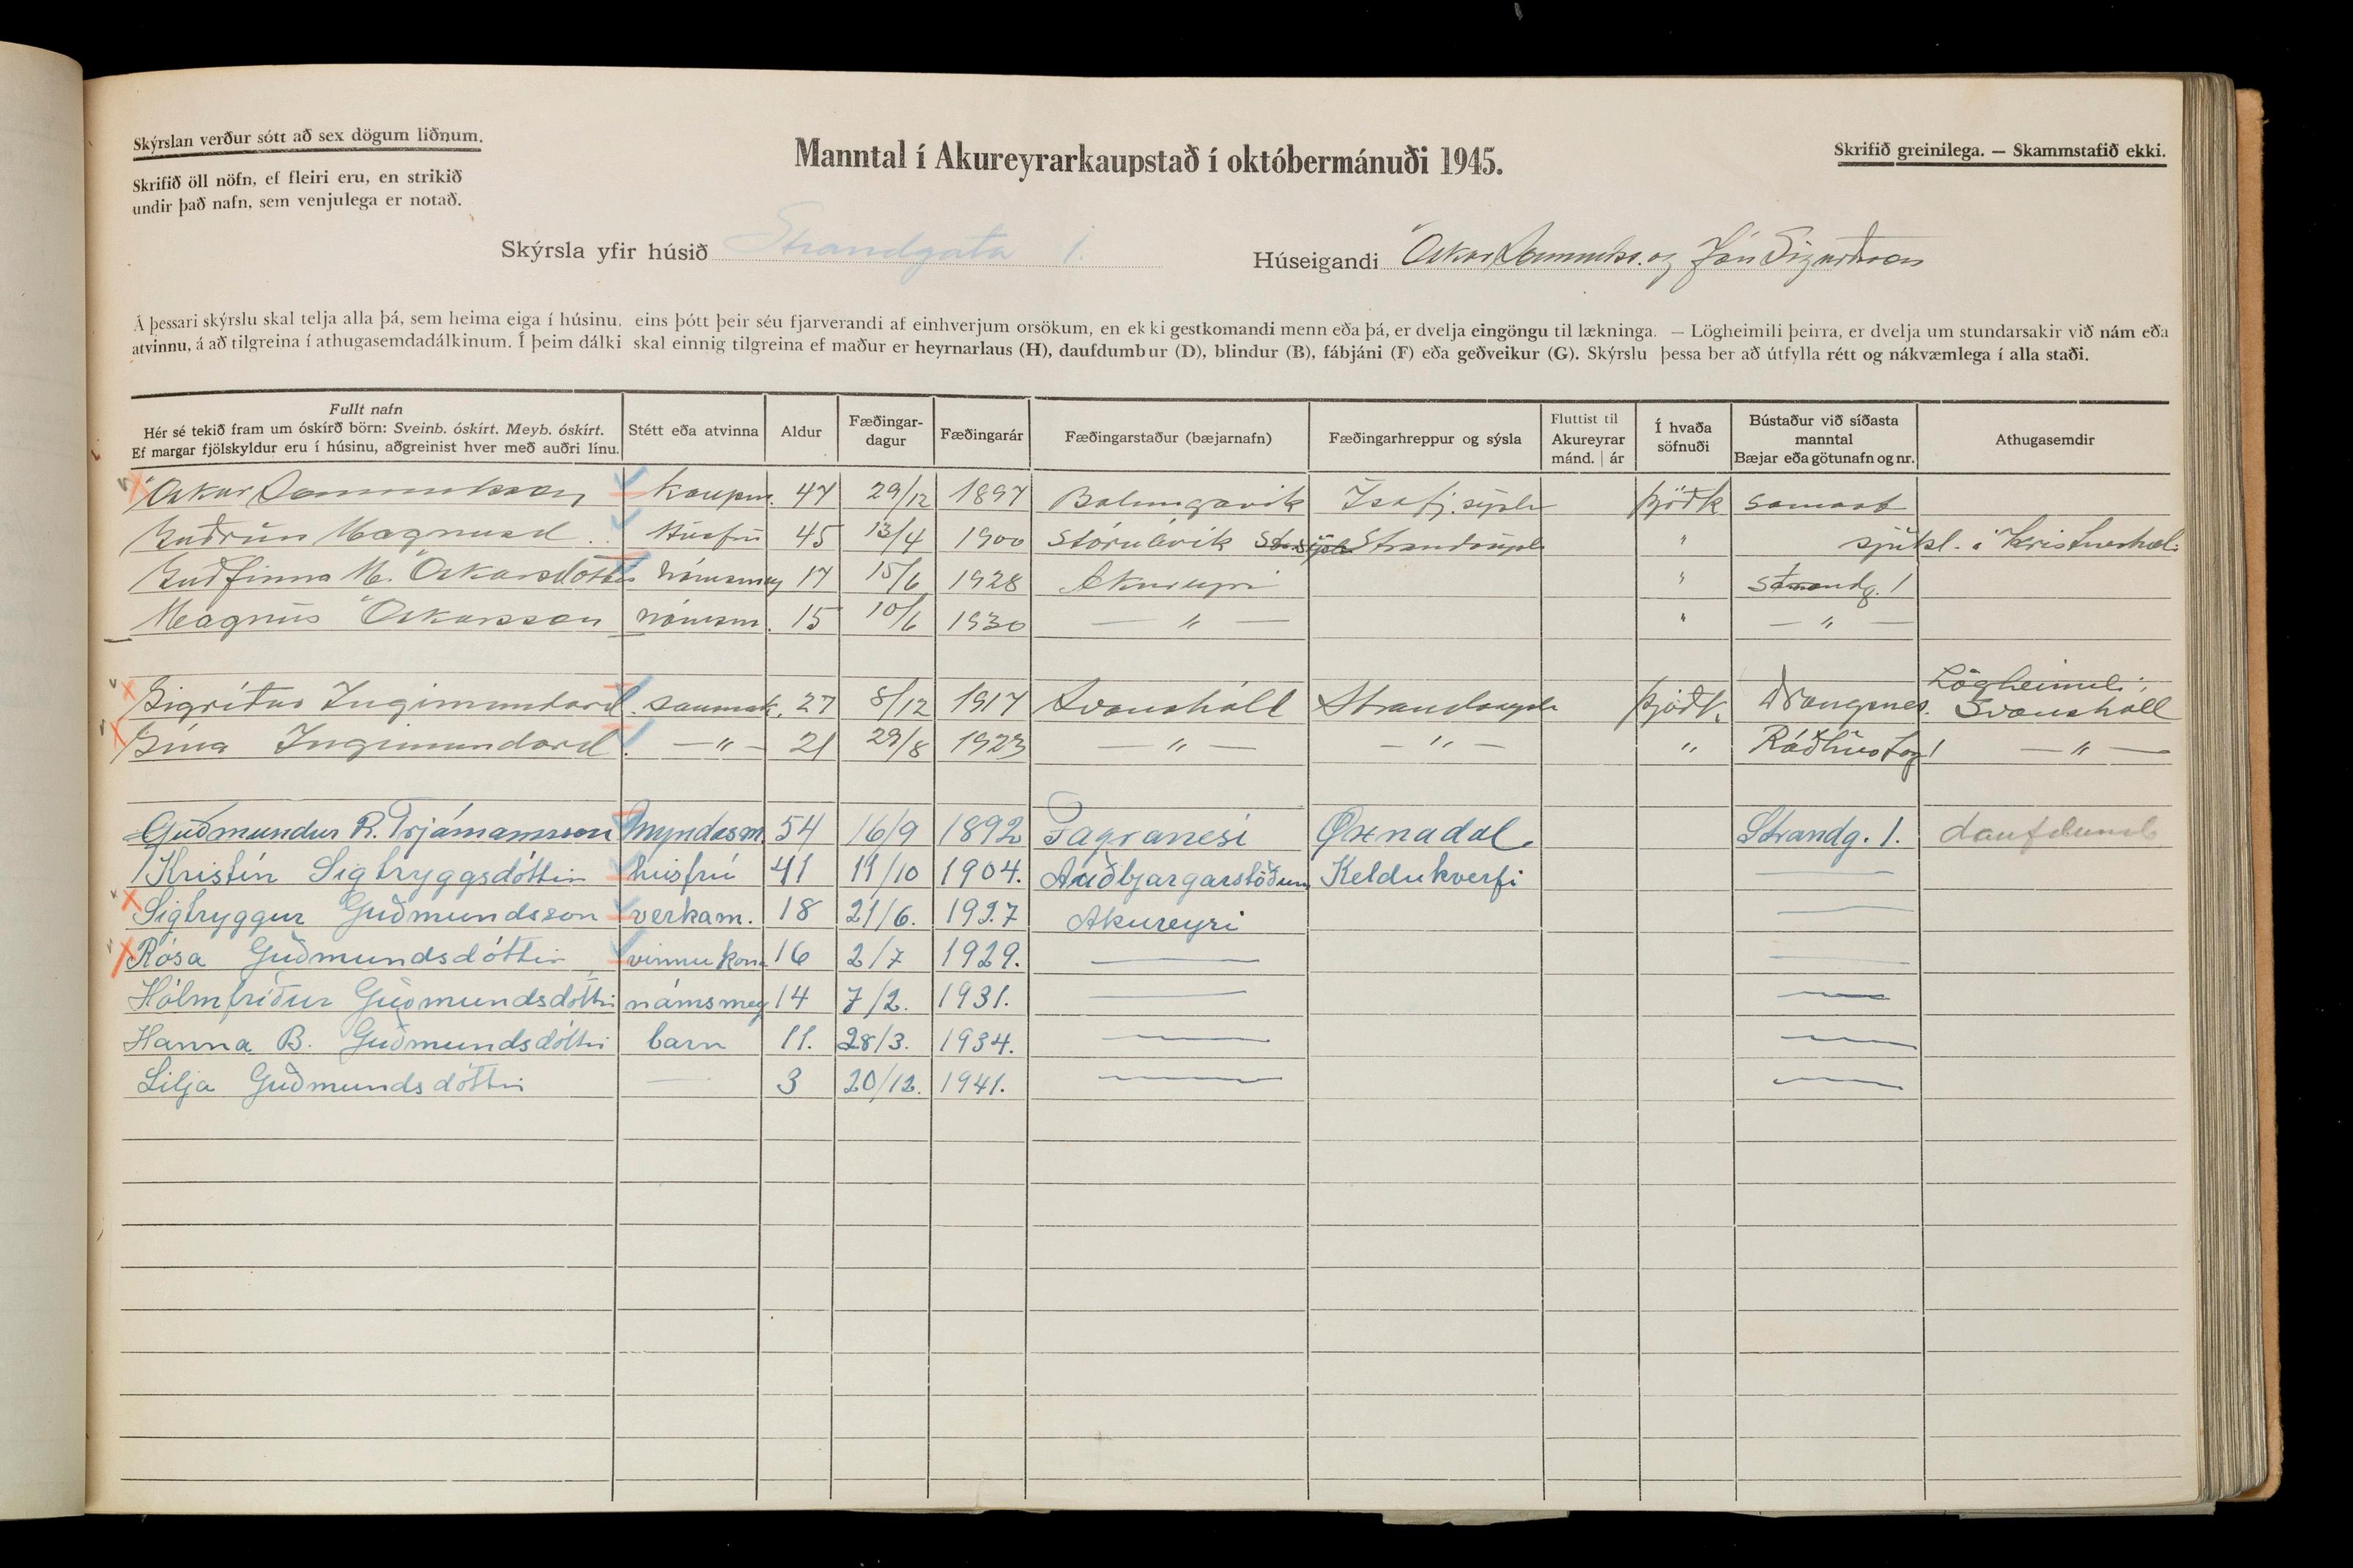 Skýrslan verður sótt að sex dögum liðnum.
Skrifið öll nöfn, ef fleiri eru, en strikið
undir það nafn, sem venjulega er notað.
Manntal í Akureyrarkaupstað í októbermánuði 1945.
Skrifið greinilega. — Skammstafið ekki.
Skýrsla yfir húsið Strandgata 1.
Húseigandi Óskar Sæmundss. og Jón Sigurðsson
Á þessari skýrslu skal telja alla þá, sem heima eiga í húsinu, eins þótt þeir séu fjarverandi af einhverjum orsökum, en ekki gestkomandi menn eða þá, er dvelja eingöngu til lækninga. — Lögheimili þeirra, er dvelja um stundarsakir við nám eða
atvinnu, á að tilgreina í athugasemdadálkinum. Í þeim dálki skal einnig tilgreina ef maður er heyrnarlaus (H), daufdumbur (D), blindur (B), fábjáni (F) eða geðveikur (G). Skýrslu þessa ber að útfylla rétt og nákvæmlega í alla staði.
Fullt nafn
Hér sé tekið fram um óskírð börn: Sveinb. óskírt. Meyb. óskírt.
Ef margar fjölskyldur eru í húsinu, aðgreinist hver með auðri línu.
Stétt eða atvinna
Aldur
Fæðingar-
dagur
Fæðingarár
Fæðingarstaður (bæjarnafn)
Fæðingarhreppur og sýsla
Fluttist til
Akureyrar
mánd. | ár
Í hvaða
söfnuði
Bústaður við síðasta
manntal
Bæjar eða götunafn og nr.
Athugasemdir
Óskar Sæmundsson kaupm. 47 29/12 1897 Bolungavik Ísafj. sýslu þjóðk
Guðrún Magnusd. Húsfrú 45 13/4 1900 Stóruávik Strandasýslu " sjúkl. á Kristneshæli
Guðfinna M. Óskarsdóttir námsmey 17 15/6 1928 Akureyri " Strandg. 1
Magnús Óskarsson námsm. 15 10/6 1930 — " — " — " —
Sigríður Ingimundard. saumak. 27 8/12 1917 Svanshóll Strandasýslu þjóðk. Drangsnes. Lögheimili: Svanshóll
Gína Ingimundard. — " — 21 29/8 1923 — " — — " — " Ráðhústog 1 — " —
Guðmundur R. Trjámannsson Myndasm. 54 16/9 1892 Fagranesi Öxnadal. Strandg. 1. daufdumb
Kristín Sigtryggsdóttir húsfrú 41 11/10 1904. Auðbjargarstöðum Keldukverfi —
Sigtryggur Guðmundsson verkam. 18 21/6. 1927 Akureyri —
Rósa Guðmundsdóttir vinnukona 16 2/7 1929. — —
Hólmfríður Guðmundsdóttir námsmey 14 7/2. 1931. — —
Hanna B. Guðmundsdóttir barn 11. 28/3. 1934. — —
Lilja Guðmundsdóttir — 3 20/12. 1941. — —